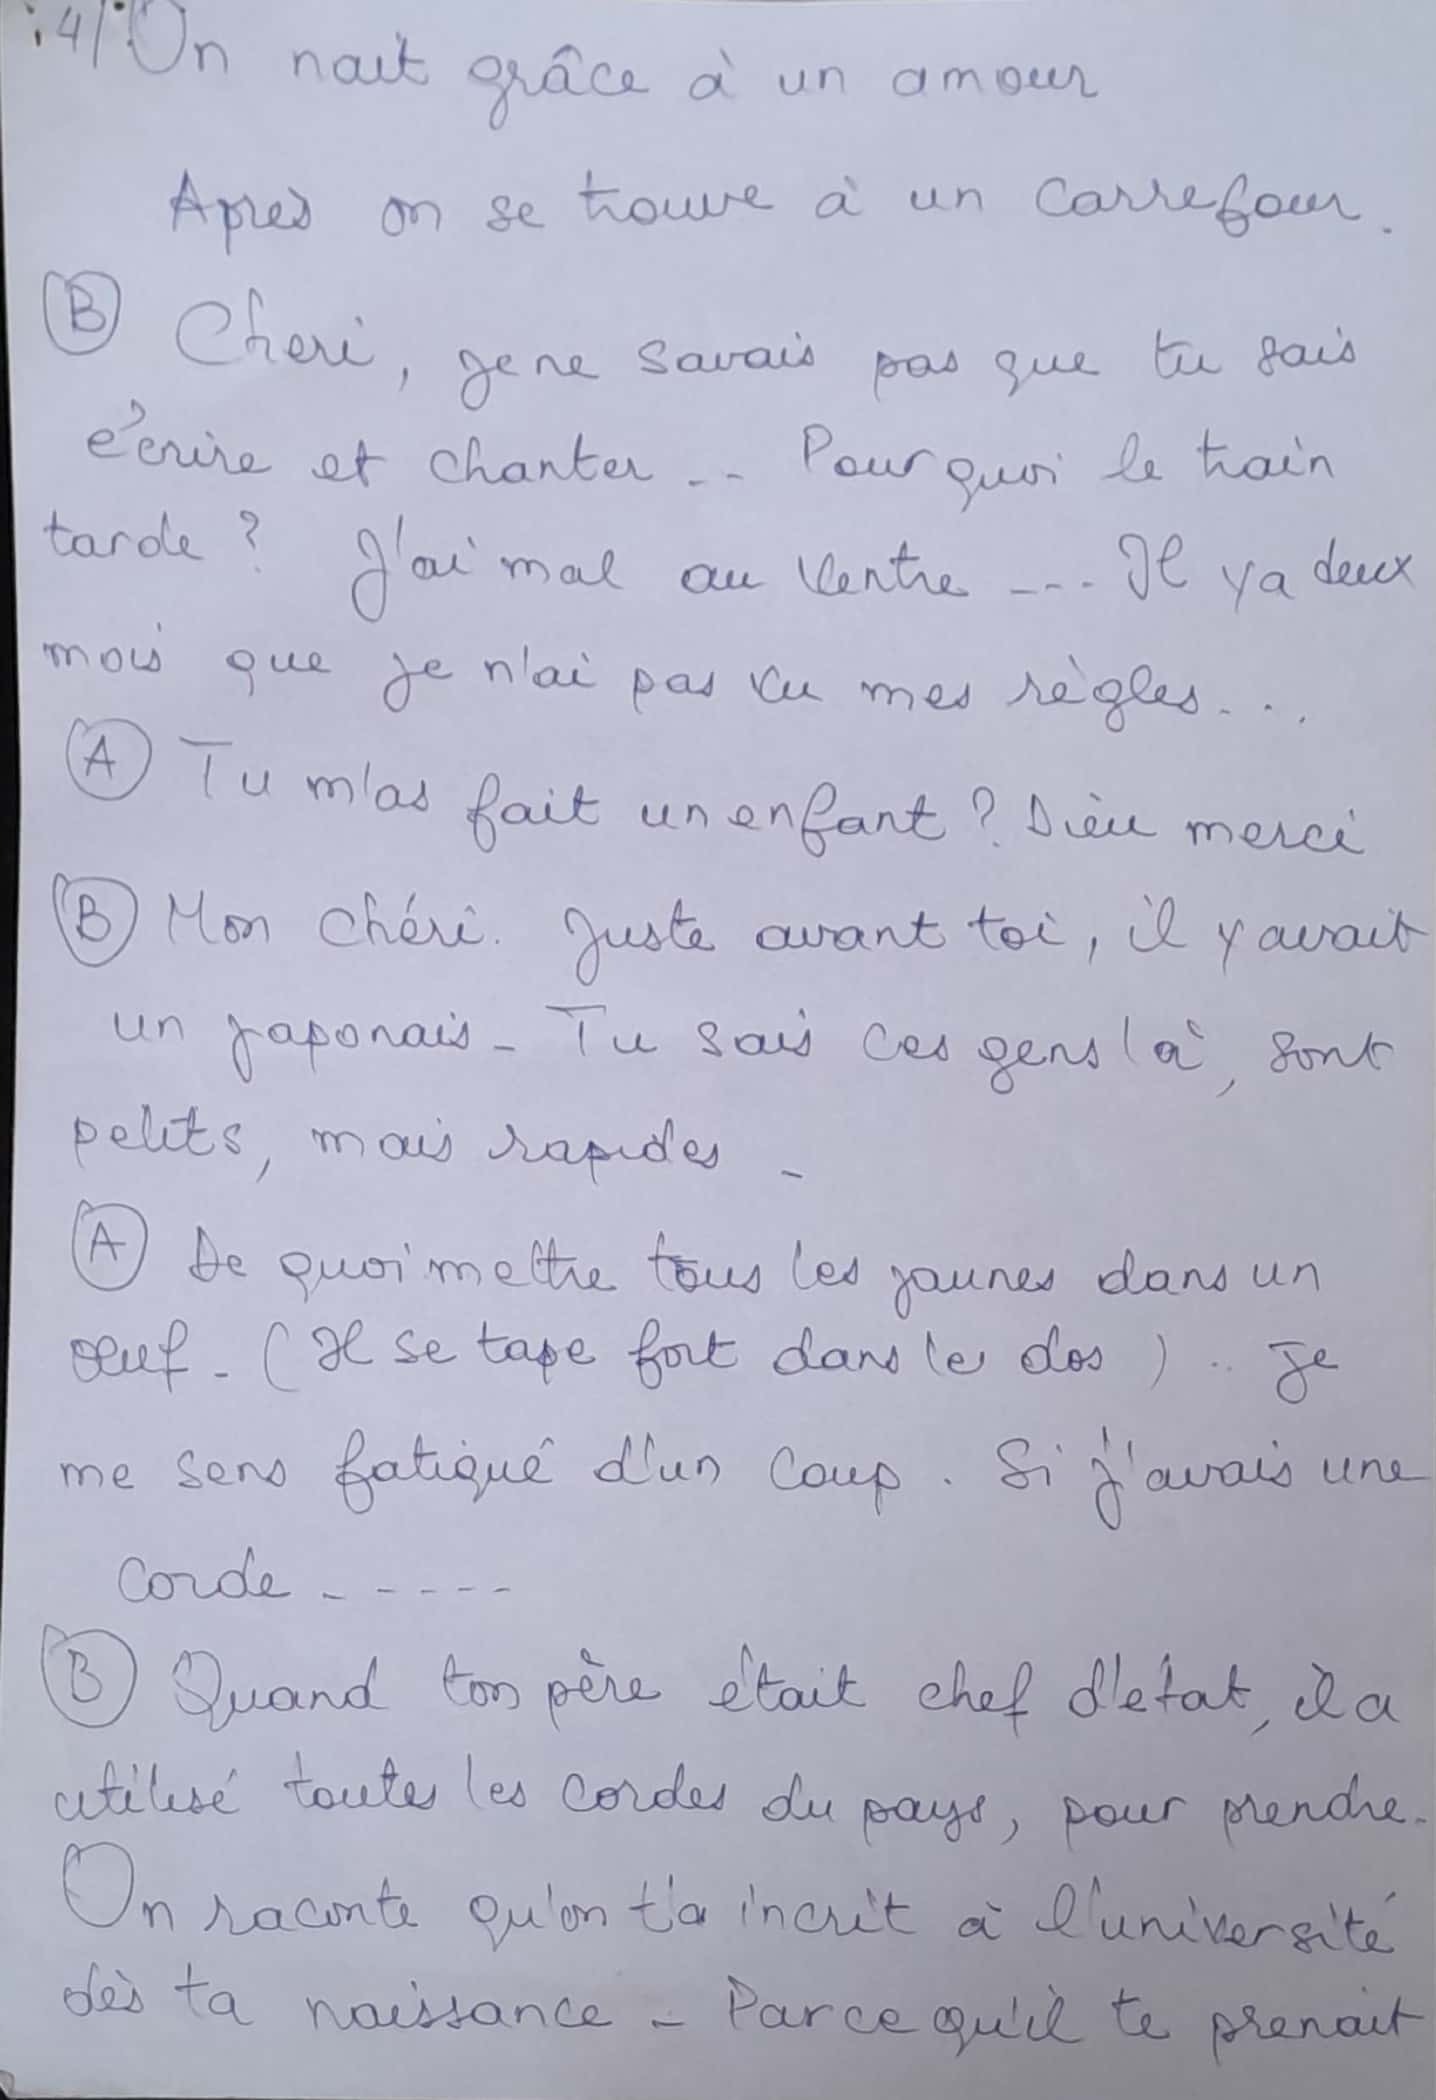 4/ On nait grâce à un amour
Après on se trouve à un carrefour.
B Cheri, je ne savais pas que tu sais
écrire et chanter .. Pourquoi le train
tarde ? J'ai mal au ventre .... Il y a deux
mois que je n'ai pas vu mes règles...
A Tu m'as fait un enfant ? Dieu merci
B Mon chéri. Juste avant toi, il y avait
un japonais - Tu sais ces gens là, sont
petits, mais rapides -
A De quoi mettre tous les jaunes dans un
œuf - (Il se tape fort dans le dos) .. Je
me sens fatigué d'un coup. Si j'avais une
corde - - - - -
B Quand ton père était chef d'état, il a
utilisé toutes les cordes du pays, pour prendre.
On raconte qu'on t'a incrit à l'université
dès ta naissance - Parce qu'il te prenait